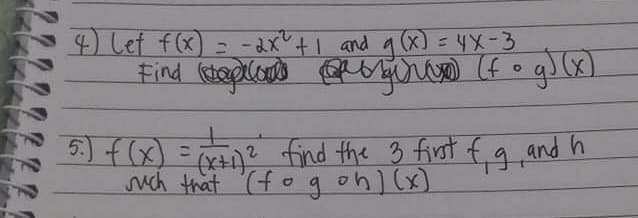 4.) Let f(x) = -2x² + 1 and g(x) = 4x - 3
Find (f ∘ g)(x)
5.) f(x) = 1/(x+1)² find the 3 first f, g, and h
such that (f ∘ g ∘ h)(x)